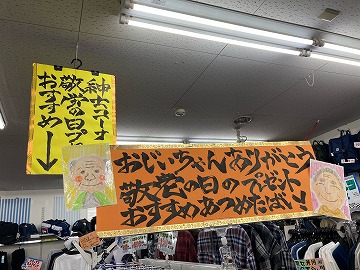 紳士コーナー
敬老の日プ
おすすめ↓
おじいちゃんありがとう
敬老の日のプレゼント
おすすめあつめたばい!